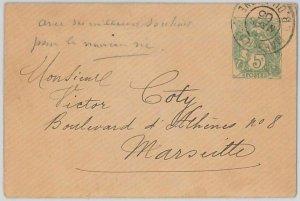 avec ses meilleurs souhaits
pour le nouvel an.
Monsieur
Victor Coty
Boulevard d'Athènes n° 8
Marseille
5c
POSTES